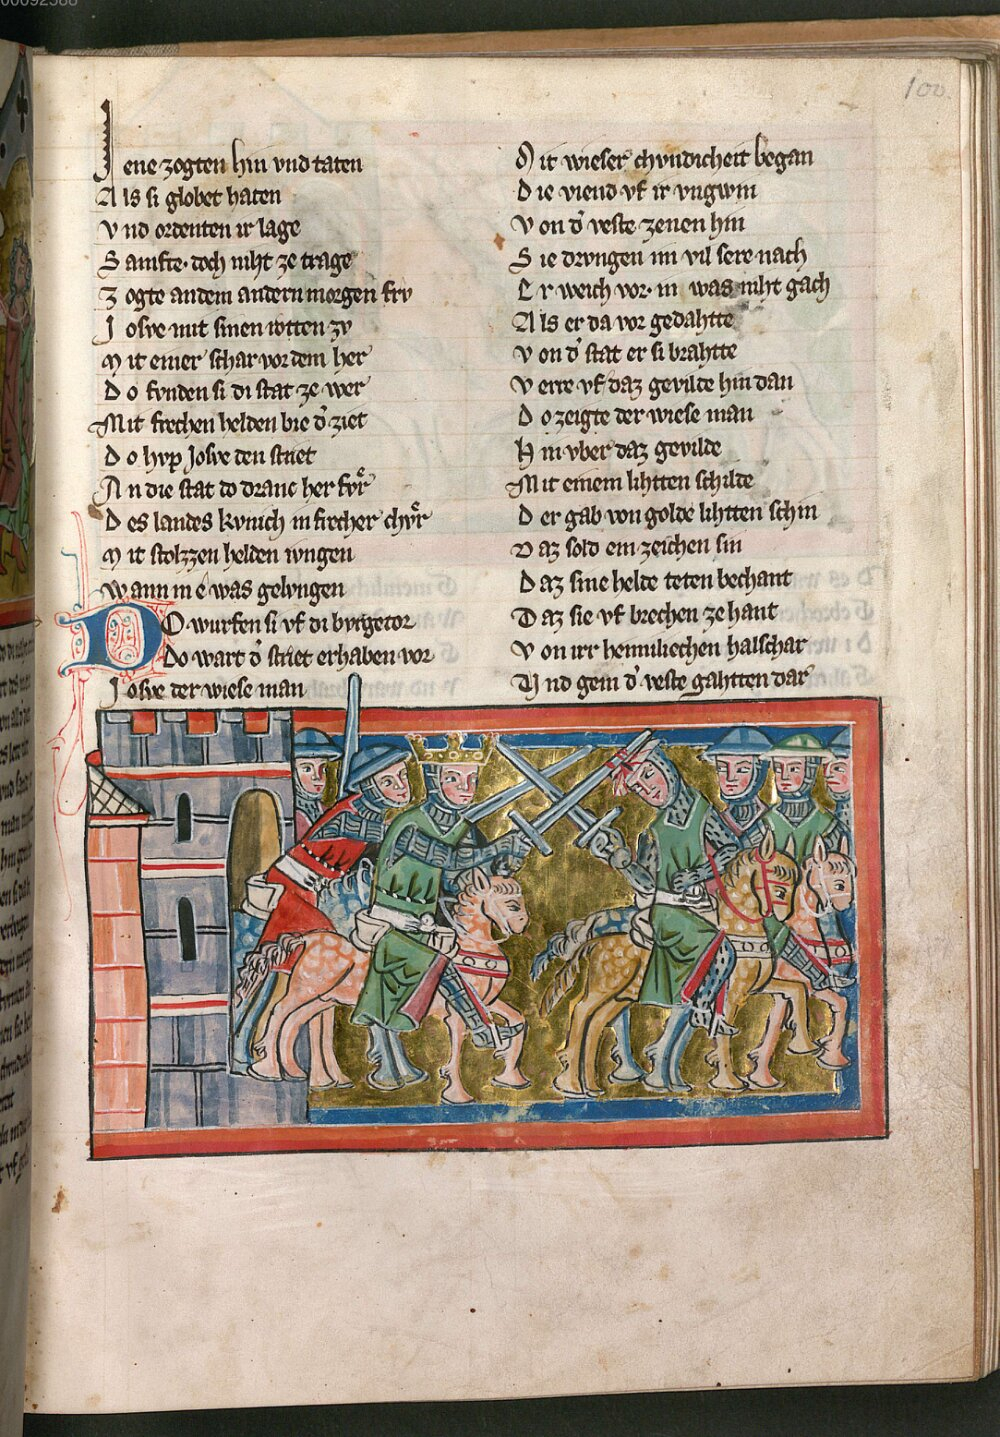 00092588
100.
Iene zogten hin vnd taten
Als si globet haten
Vnd ordenten ir lage
Samfte. doch niht ze trage
Zogte an dem andern morgen frv
Josve mit sinen rotten zv
Mit einer schar vor dem her
Do fvnden si di stat ze wer
Mit frechen helden bie d᷑ ziet
Do hvp Josve den striet
An die stat do dranc her fvͦr
Des landes kvnich in frecher chvͦr
Mit stolzzen helden ivngen
Wann in e was gelvngen
DO wurfen si vf di bvrgetor
Do wart d᷑ striet erhaben vor
Josve der wiese man
Mit wieser chvndicheit began
Die viend vf ir vngwin
Von d᷑ veste zenen hin
Sie drvngen im vil sere nach
Er weich vor in was niht gach
Als er da vor gedahtte
Von d᷑ stat er si brahtte
Verre vf daz gevilde hin dan
Do zeigte der wiese man
Hin vber daz gevilde
Mit einem lihtten schilde
Der gab von golde lihtten schin
Daz sold ein zeichen sin
Daz sine helde teten bechant
Daz sie vf brechen ze hant
Von irr heimiliechen halschar
Vnd gein d᷑ veste gahtten dar